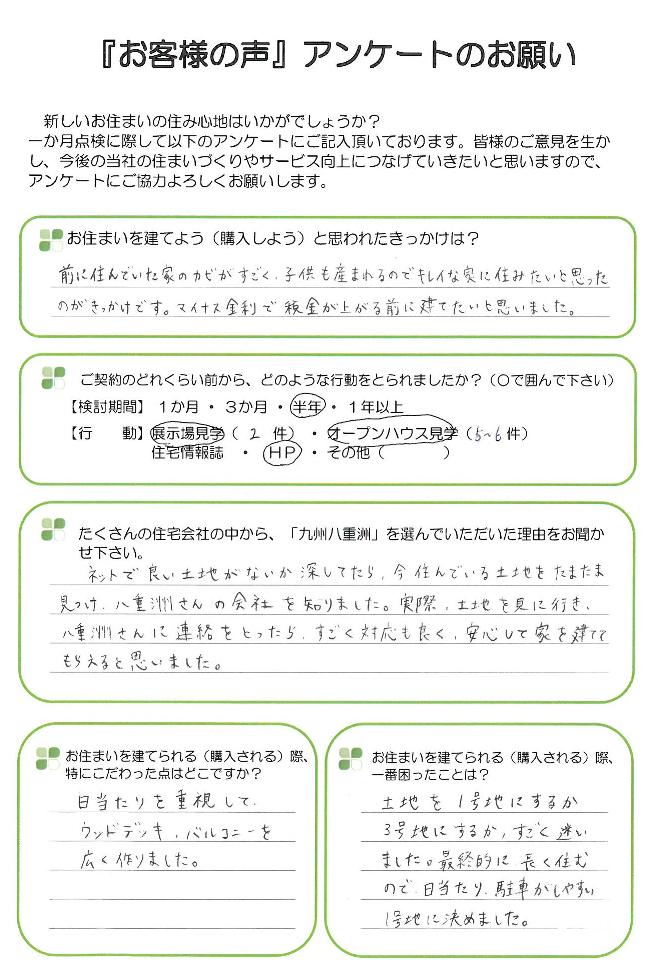 『お客様の声』アンケートのお願い
新しいお住まいの住み心地はいかがでしょうか？
一か月点検に際して以下のアンケートにご記入頂いております。皆様のご意見を生か
し、今後の当社の住まいづくりやサービス向上につなげていきたいと思いますので、
アンケートにご協力よろしくお願いします。
お住まいを建てよう（購入しよう）と思われたきっかけは？
前に住んでいた家のカビがすごく、子供も産まれるのでキレイな家に住みたいと思った
のがきっかけです。マイナス金利で税金が上がる前に建てたいと思いました。
ご契約のどれくらい前から、どのような行動をとられましたか？（〇で囲んで下さい）
【検討期間】 1か月 ・ 3か月 ・ 半年 ・ 1年以上
【行　動】 展示場見学（ 2 件） ・ オープンハウス見学（5~6件）
住宅情報誌 ・ HP ・ その他（　　　　）
たくさんの住宅会社の中から、「九州八重洲」を選んでいただいた理由をお聞か
せ下さい。
ネットで良い土地がないか探してたら、今住んでいる土地をたまたま
見つけ、八重洲さんの会社を知りました。実際、土地を見に行き、
八重洲さんに連絡をとったら、すごく対応も良く、安心して家を建てて
もらえると思いました。
お住まいを建てられる（購入される）際、
特にこだわった点はどこですか？
日当たりを重視して、
ウッドデッキ、バルコニーを
広く作りました。
お住まいを建てられる（購入される）際、
一番困ったことは？
土地を1号地にするか
3号地にするか、すごく迷い
ました。最終的に長く住む
ので、日当たり、駐車がしやすい
1号地に決めました。